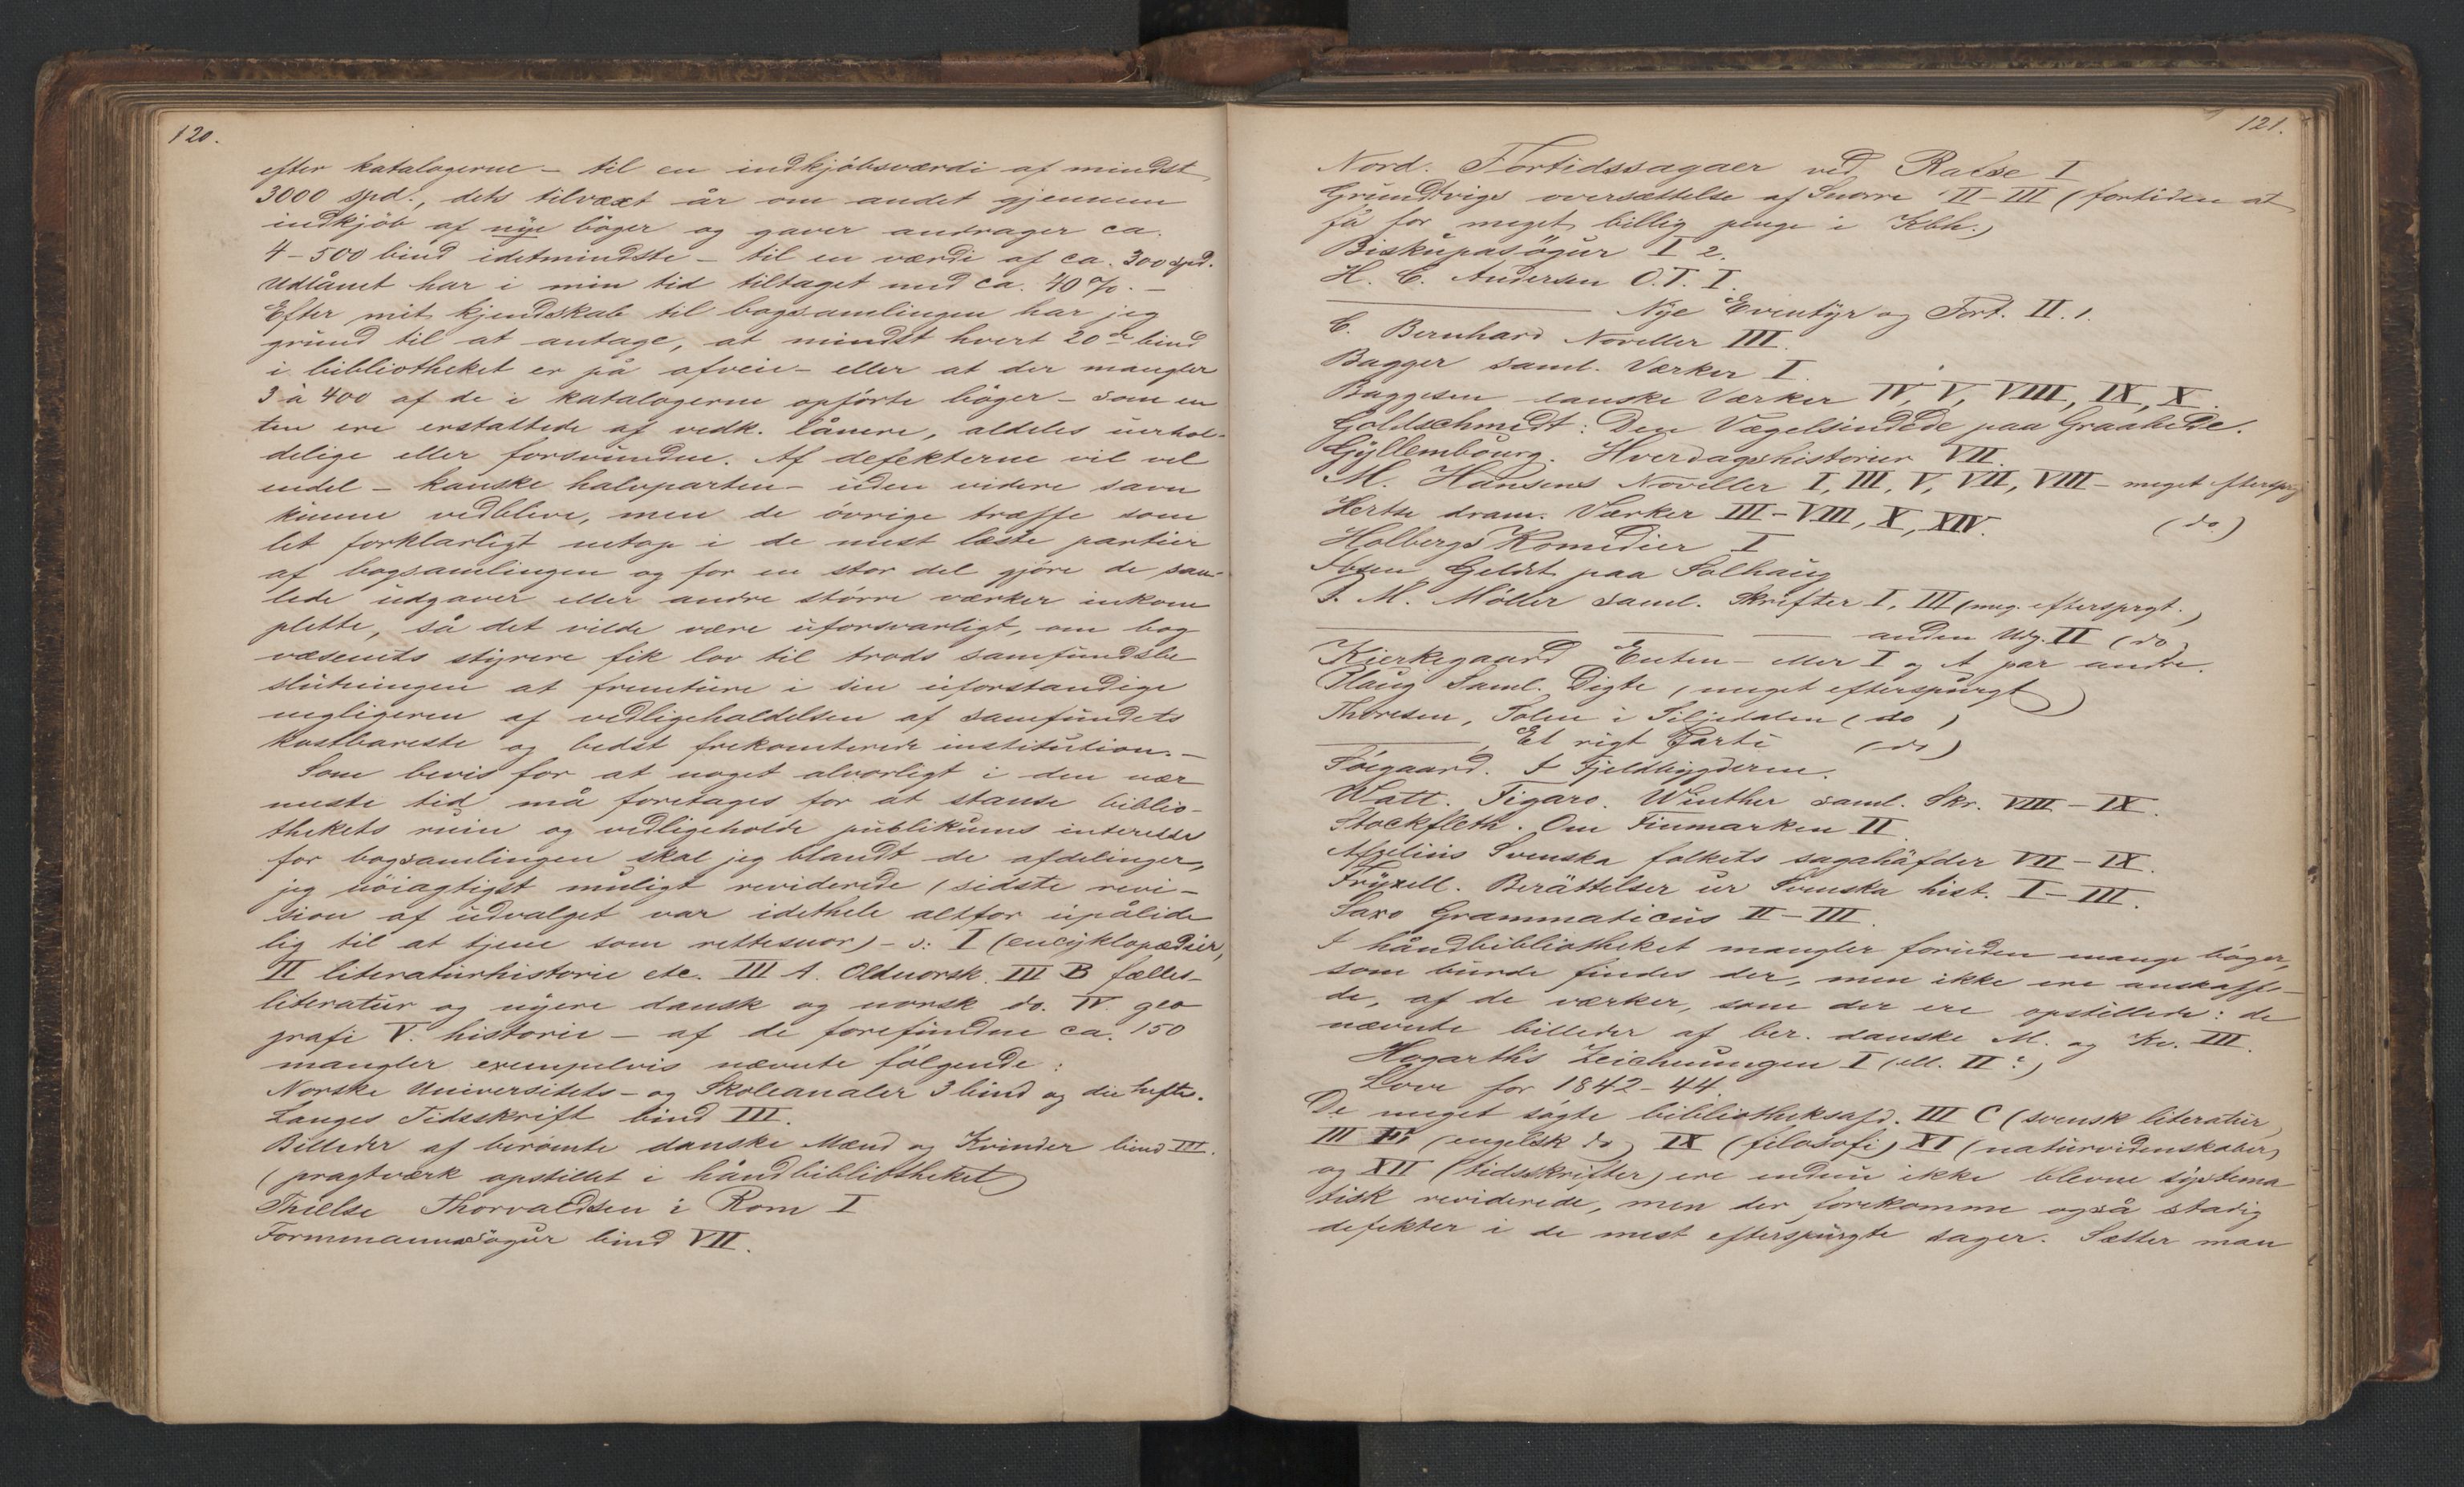 120.
efter katalogerne - til en indkjøbsværdi af mindst
3000 spd., dets tilvæxt år om andet gjennem
indkjöb af nye böger og gaver andrager ca.
4-500 bind idetmindste - til en værdi af ca. 300 spd.
Udlånet har i min tid tiltaget med ca. 40 %. -
Efter mit kjendskab til bogsamlingen har jeg
grund til at antage, at mindst hvert 20de bind
i bibliotheket er på afveie - eller at der mangler
3 à 400 af de i katalogerne opførte bøger - som en
ten ere erstattede af vedk. lånere, aldeles uerhol-
delige eller forsvundne. Af defekterne vil vel
endel - kanske halvparten - uden videre savn
kunne vedblive, men de övrige træffe som
let forklarligt netop i de mest læste partier
af bogsamlingen og for en stor del gjøre de sam-
lede udgaver eller andre större værker inkom
plette, så det vilde være uforsvarligt, om bog
væsenets styrere fik lov til trods samfundsbe
slutningen at fremture i sin uforstandige
negligeren af vedligeholdelsen af samfundets
kostbareste og bedst frekventerede institution. -
Som bevis for at noget alvorligt i den nær
meste tid må foretages for at standse biblio-
thekets ruin og vedligeholde publikums interesse
for bogsamlingen skal jeg blandt de afdelinger,
jeg nöiagtigst muligt reviderede (sidste revi-
sion af udvalget var idethele altfor upålide
lig til at tjene som rettesnor) - ɔ: I (encyklopædier,
II literaturhistorie etc. III A. Oldnorsk. III B fælles-
literatur og nyere dansk og norsk do. IV. geo
grafi V. historie - af de forefundne ca. 150
mangler exempelvis nævnte følgende:
Norske Universitets- og Skoleanaler 3 bind og div hefter.
Langes Tidsskrift bind III.
Billeder af berömte danske Mænd og Kvinder bind III.
(pragtværk opstillet i håndbibliotheket)
Thielse Thorvaldsen i Rom I
Formmannasögur bind VII.
121.
Nord. Fortidssagaer ved Rafse I
Grundtvigs oversættelse af Snorre II-III (fortiden at
få for meget billig penge i Kbh.)
Biskupasögur I 2.
H. C. Andersen O.T. I.
——— Nye Eventyr og Fort. II. 1.
C. Bernhard Noveller III.
Bagger saml. Værker I.
Baggesen danske Værker IV, V, VIII, IX, X.
Goldschmidt: Den Vægelsindede paa Graahede.
Gyllembourg. Hverdagshistorier VII.
M. Hansens Noveller I, III, V, VII, VIII - meget eftersprgt
Hertz dram. Værker III-VIII, X, XIV. (do)
Holbergs Komedier I
Ibsen Gildet paa Solhaug
P. M. Möller saml. Skrifter I, III (meg. eftersprgt.)
——— anden Udg. II (do)
Kierkegaard Enten - eller I og et par andre.
Ploug Saml. Digte (meget efterspurgt)
Thoresen, Solen i Siljedalen (do)
———, Et rigt Parti (do)
Söegaard. I Fjeldbygderne.
Watt. Figaro. Winther saml. Skr. VIII-IX.
Stockfleth. Om Finmarken II.
Afzelius Svenska folkets sagohäfder VII-IX.
Fryxell. Berättelser ur Svenska hist. I-III.
Saxo Grammaticus II-III.
I håndbibliotheket mangler foruden mange böger,
som burde findes der, men ikke ere anskaffe-
de, af de værker, som der ere opstillede: de
nævnte billeder af ber. danske M. og Kv. III.
Hogarth's Zeichnungen I (ell. II?)
Love for 1842-44.
De meget søgte bibliotheksafd. III C (svensk literatur)
III E (engelsk do) IX (filosofi) XI (naturvidenskaber)
og XII (tidsskrifter) ere endnu ikke blevne systema
tisk reviderede, men der forekomme også stadig
defekter i de mest efterspurgte sager. Sætter man